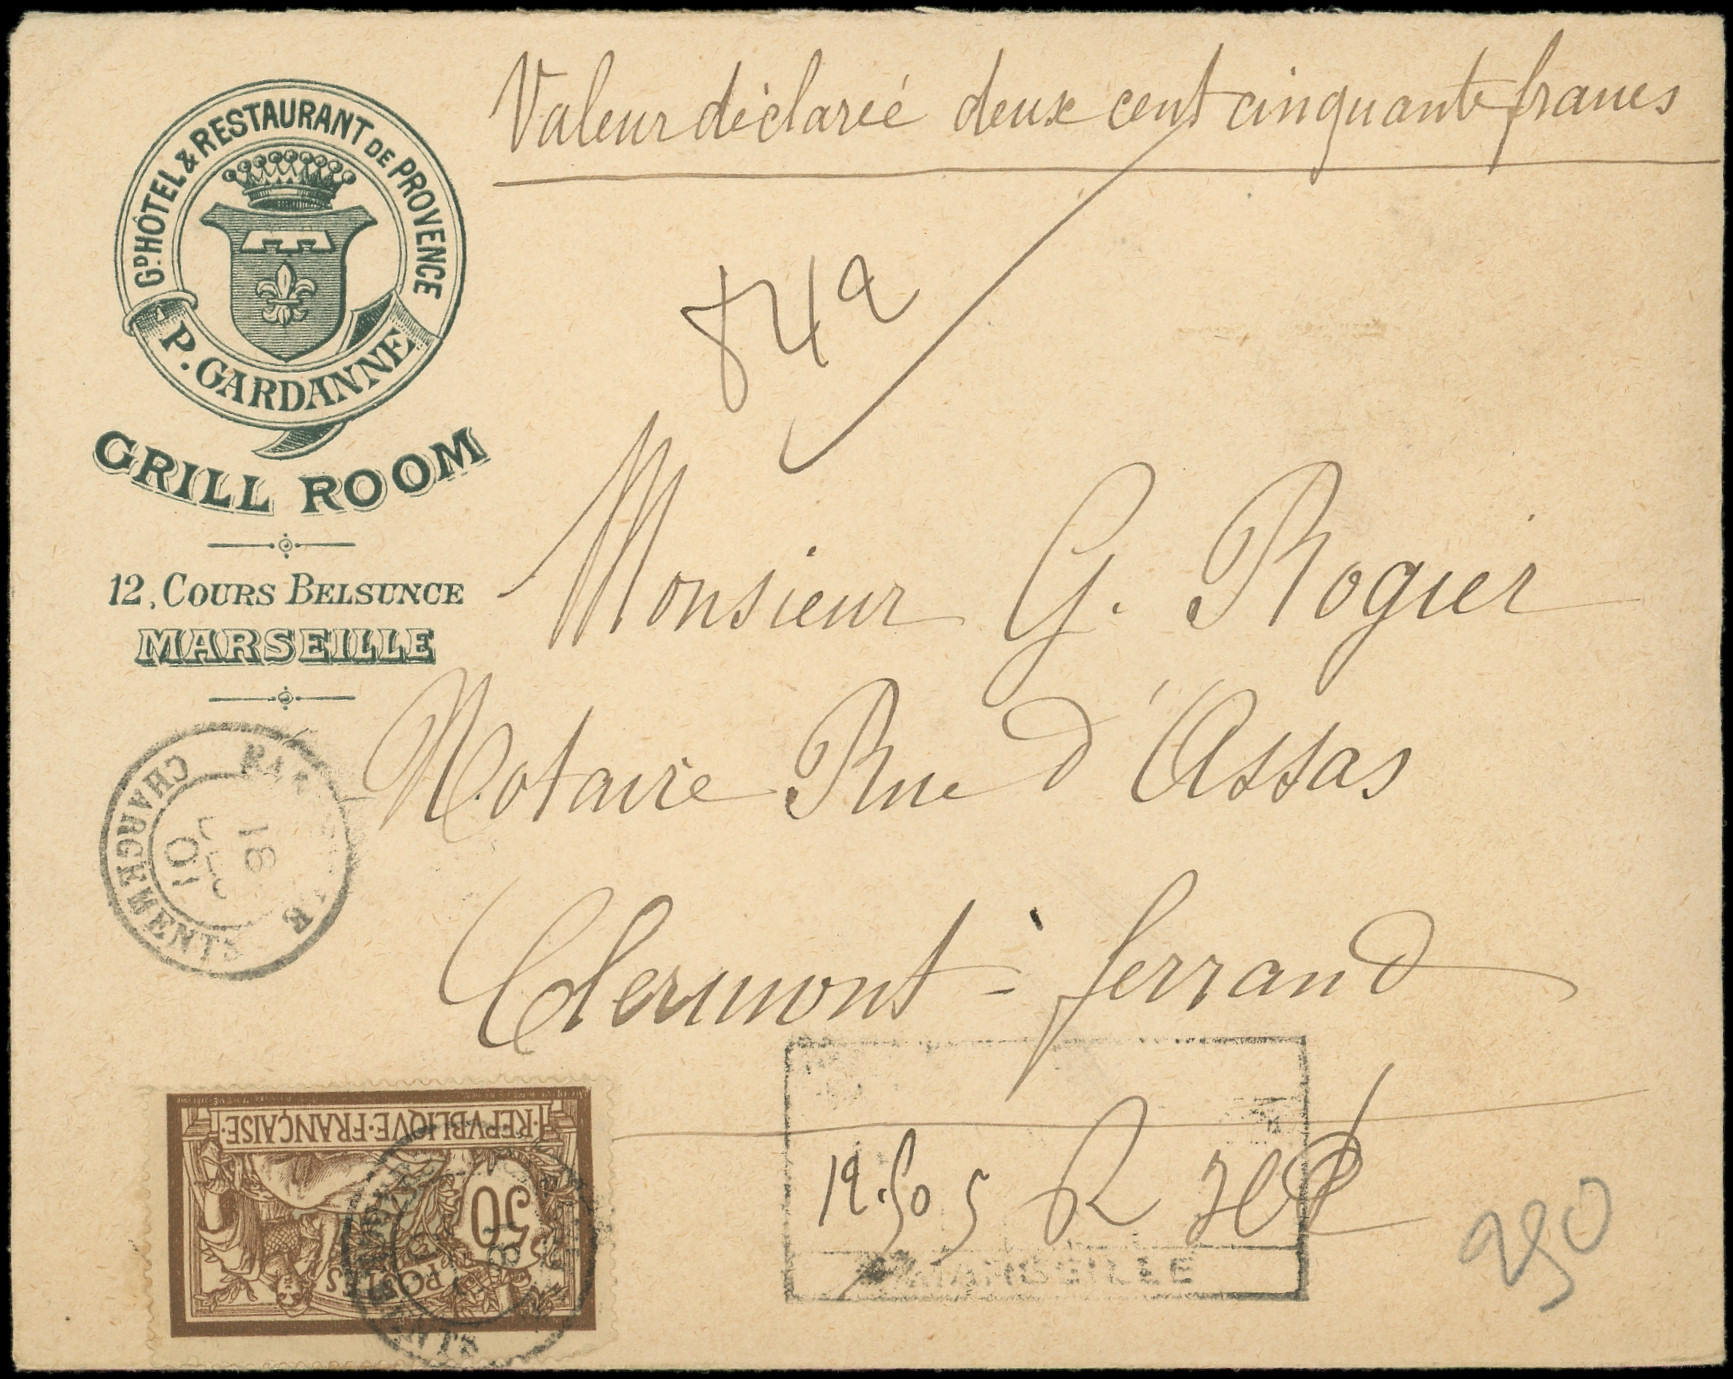 Valeur déclarée deux cent cinquante francs
GD HÔTEL & RESTAURANT DE PROVENCE
P. GARDANNE
GRILL ROOM
12, COURS BELSUNCE
MARSEILLE
842
Monsieur G. Rogier
Notaire Rue d'Assas
Clermont-ferrand
CHARGEMENTS
18
01
REPVBLIQVE FRANÇAISE
50
POSTES
MARSEILLE
250